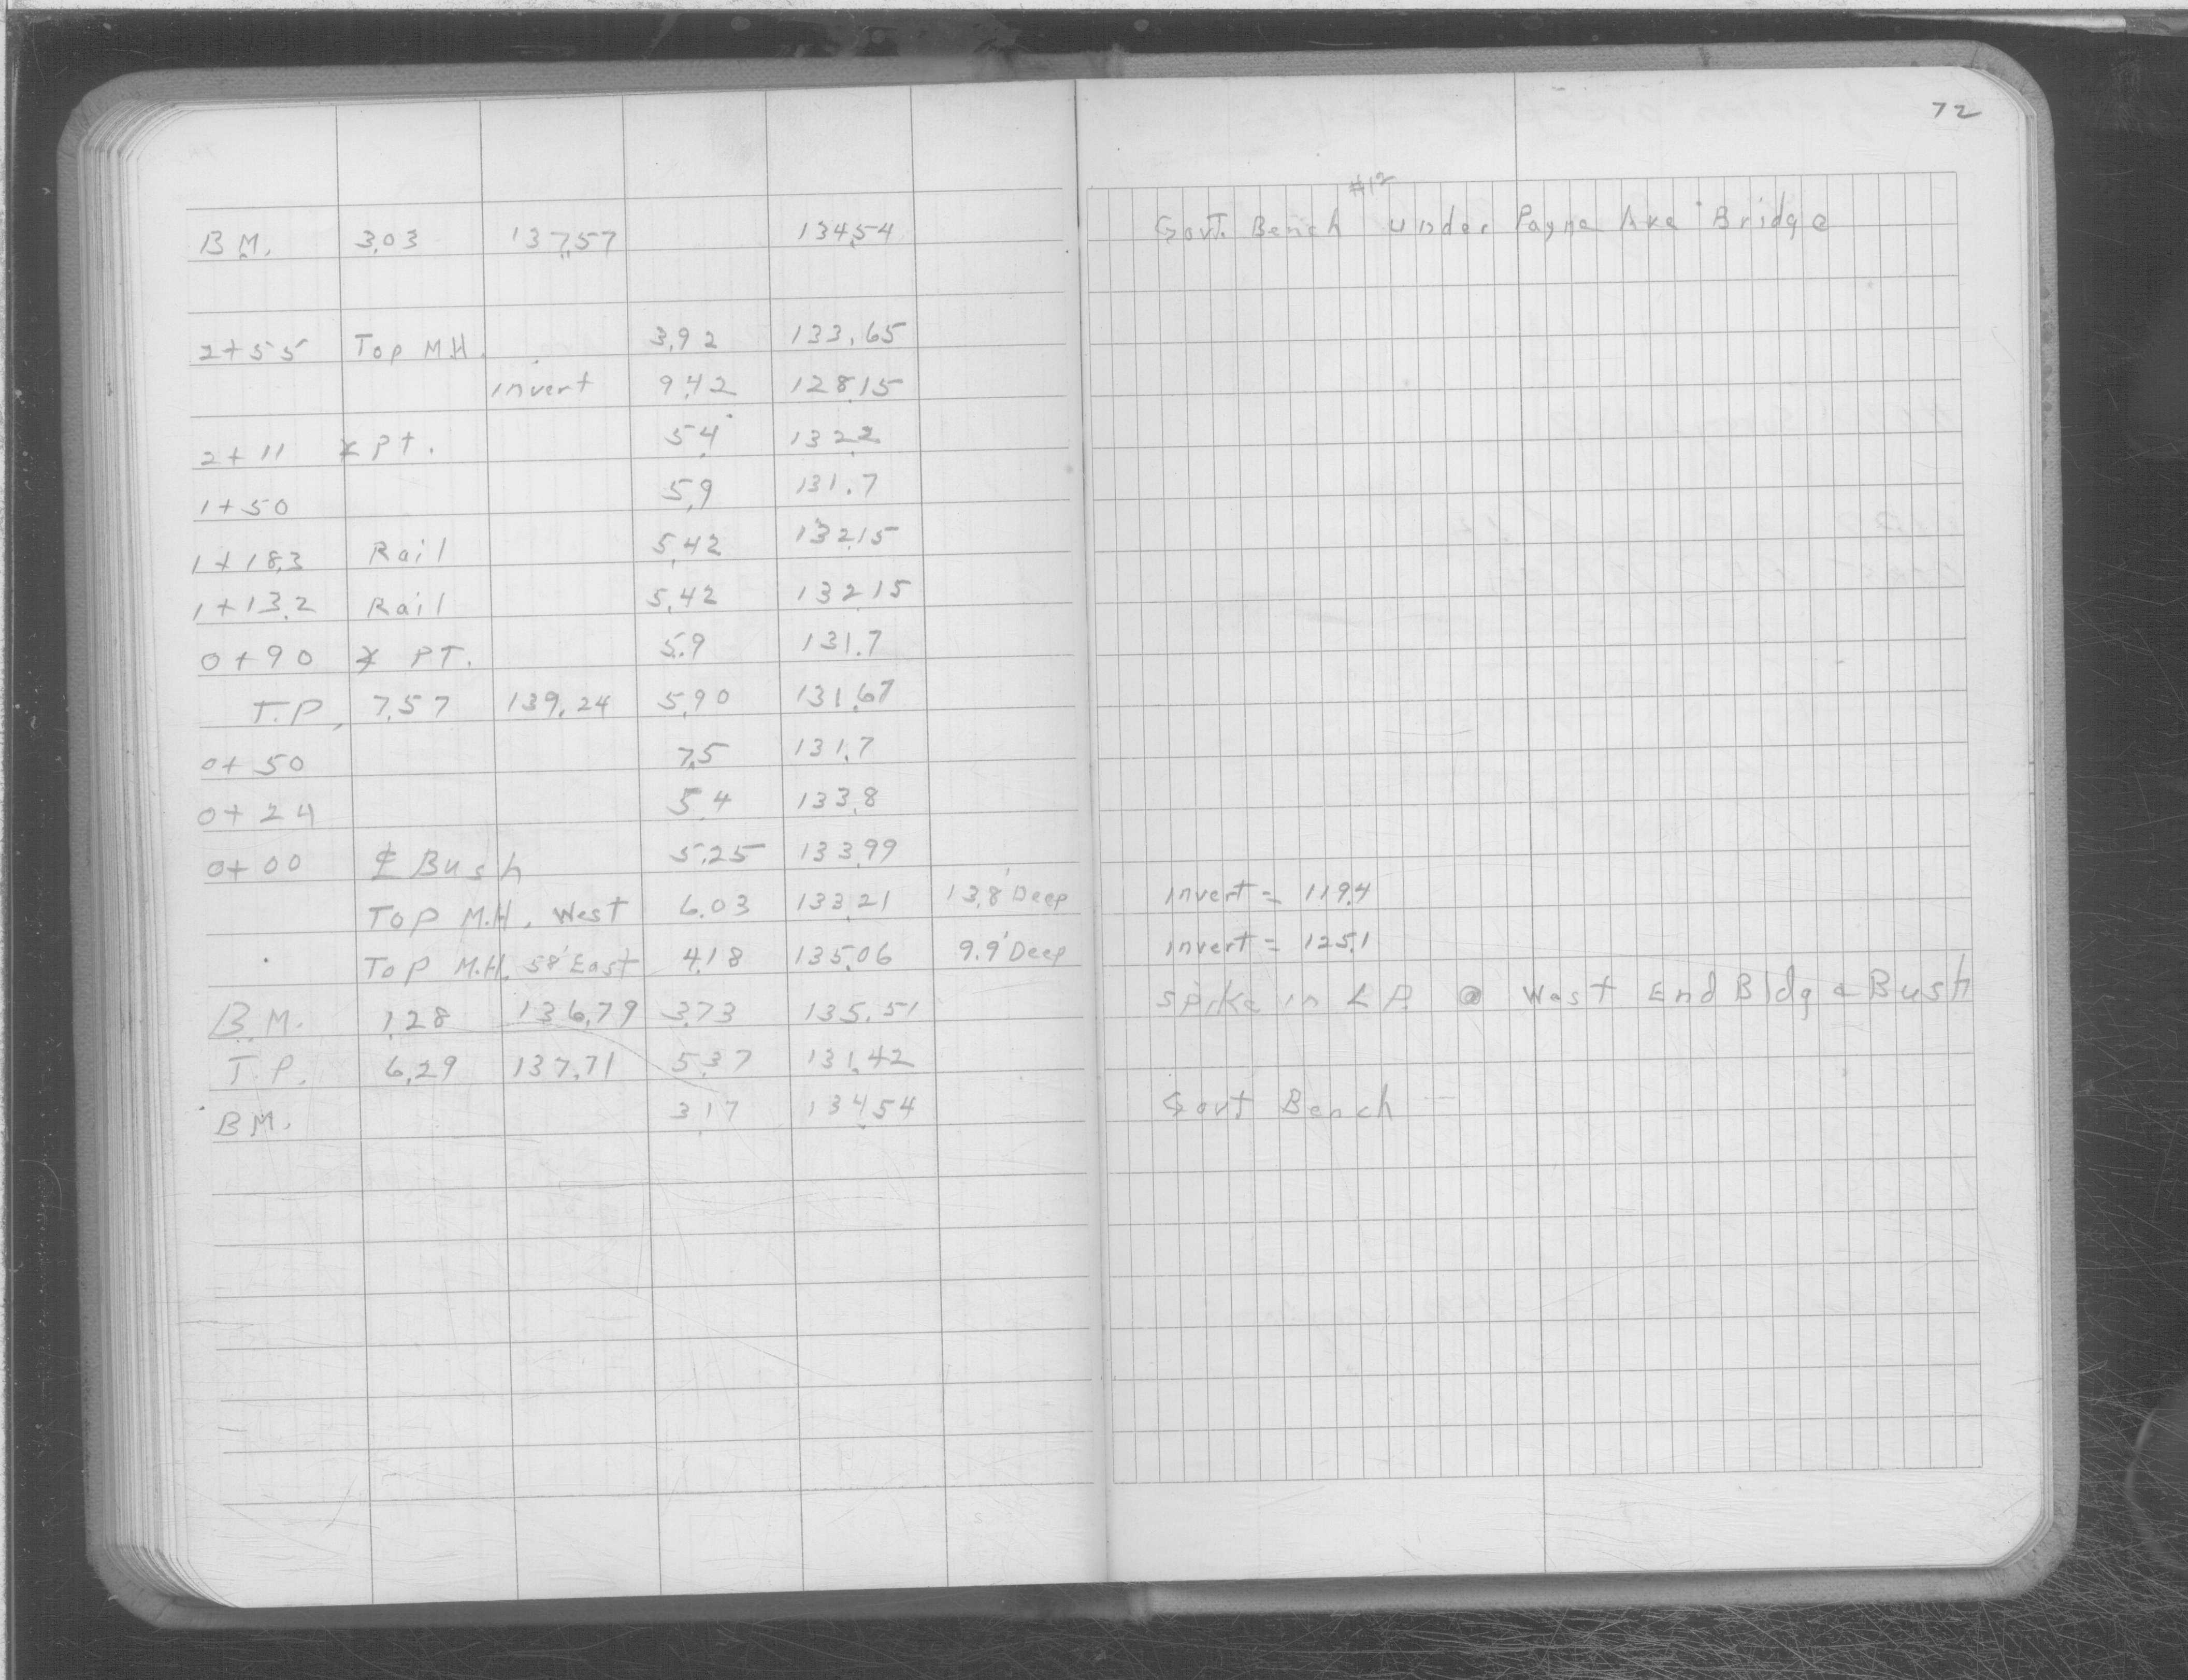 72
#12
B.M. 3.03 137.57 134.54 Govt. Bench under Payne Ave Bridge
2+55 Top M.H. 3.92 133.65
invert 9.42 128.15
2+11 ⦣ Pt. 5.4 132.2
1+50 5.9 131.7
1+18.3 Rail 5.42 132.15
1+13.2 Rail 5.42 132.15
0+90 ⦣ PT. 5.9 131.7
T.P. 7.57 139.24 5.90 131.67
0+50 7.5 131.7
0+24 5.4 133.8
0+00 ⅊ Bush 5.25 133.99
Top M.H. West 6.03 133.21 13.8' Deep invert = 119.4
Top M.H. 58' East 4.18 135.06 9.9' Deep invert = 125.1
B.M. 1.28 136.79 3.73 135.51 Spike in L.P. @ West End Bldg & Bush
T.P. 6.29 137.71 5.37 131.42
B.M. 3.17 134.54 Govt Bench